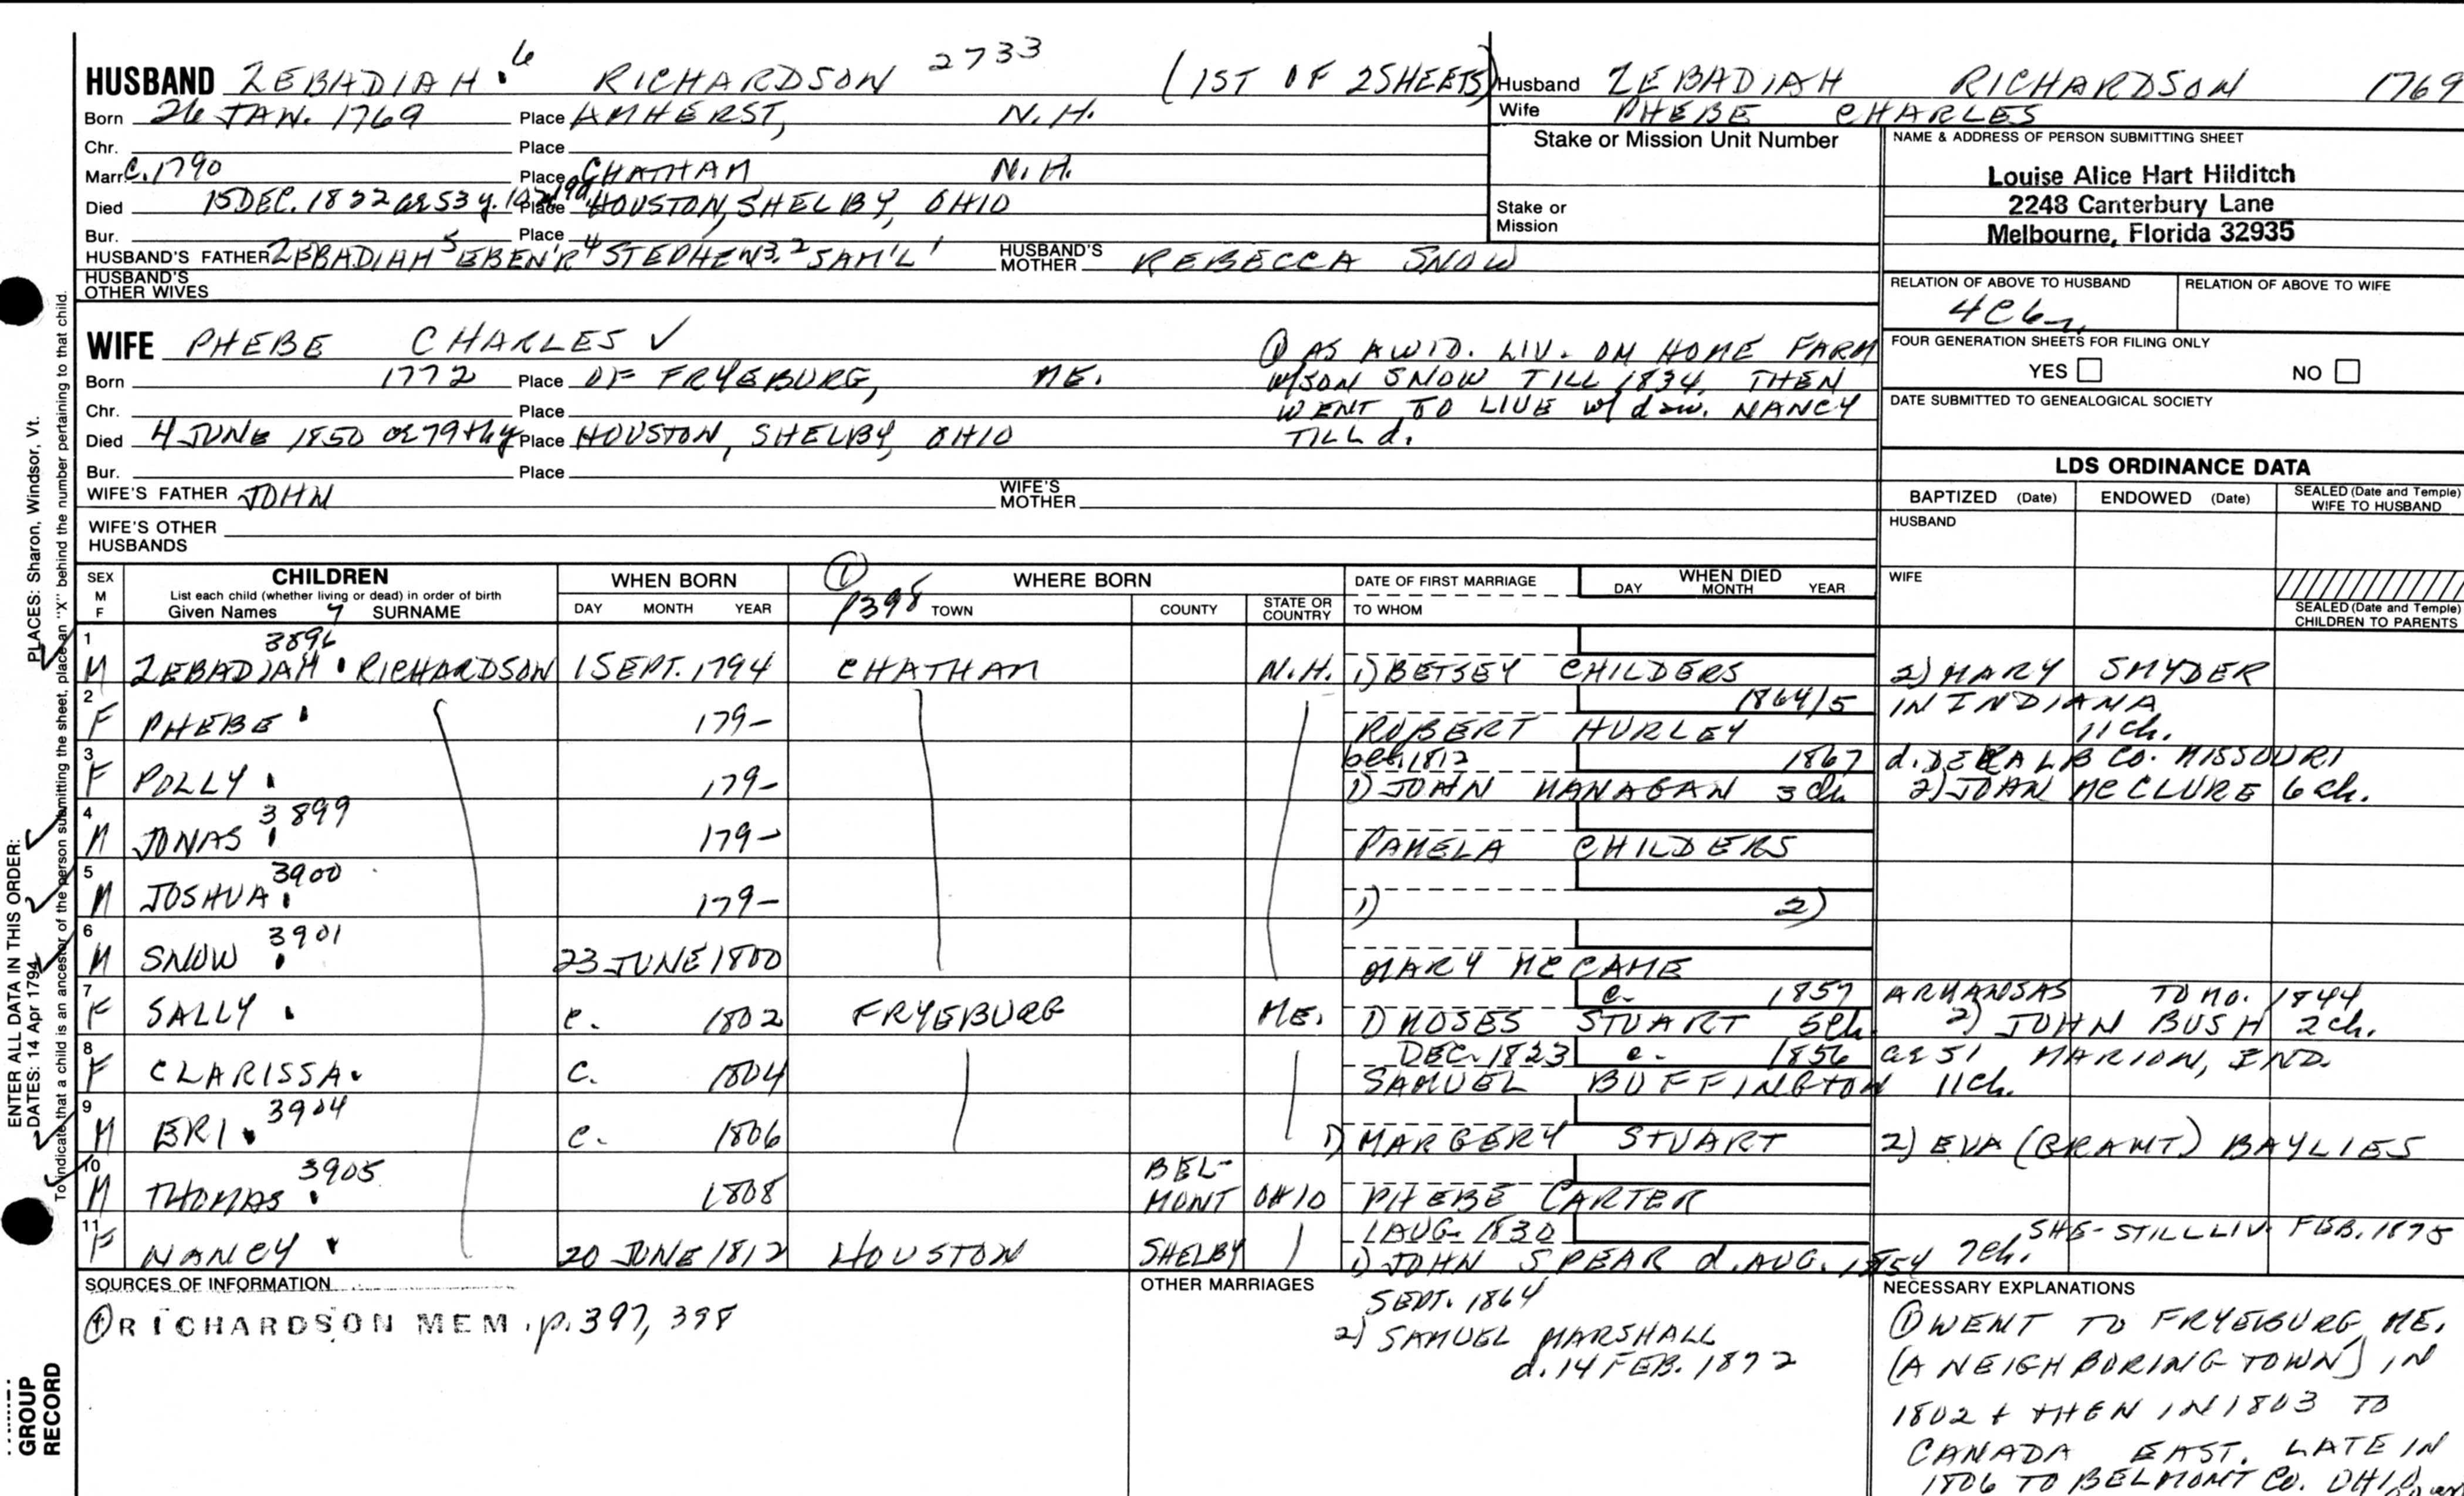 HUSBAND ZEBADIAH . 6 RICHARDSON 2733 (1ST OF 2 SHEETS)
Born 26 JAN. 1769 Place AMHERST, N.H.
Chr. Place
Marr. C. 1790 Place CHATHAM N.H.
Died 15 DEC. 1822 ae 53 y. Place HOUSTON, SHELBY, OHIO
Bur. Place
HUSBAND'S FATHER ZEBADIAH 5 EBEN'R 4 STEPHEN 3, 2 SAM'L 1 HUSBAND'S MOTHER REBECCA SNOW
HUSBAND'S OTHER WIVES
Husband ZEBADIAH RICHARDSON 1769
Wife PHEBE CHARLES
Stake or Mission Unit Number
Stake or
Mission
NAME & ADDRESS OF PERSON SUBMITTING SHEET
Louise Alice Hart Hilditch
2248 Canterbury Lane
Melbourne, Florida 32935
RELATION OF ABOVE TO HUSBAND RELATION OF ABOVE TO WIFE
4C6
FOUR GENERATION SHEETS FOR FILING ONLY
YES NO
DATE SUBMITTED TO GENEALOGICAL SOCIETY
WIFE PHEBE CHARLES ✓
Born 1772 Place OF FRYEBURG, ME.
Chr. Place
Died 4 JUNE 1850 ae 79th y Place HOUSTON, SHELBY, OHIO
Bur. Place
WIFE'S FATHER JOHN WIFE'S MOTHER
WIFE'S OTHER HUSBANDS
① AS A WID. LIV. ON HOME FARM
W/SON SNOW TILL 1834, THEN
WENT TO LIVE w/ dau. NANCY
TILL d.
LDS ORDINANCE DATA
BAPTIZED (Date) ENDOWED (Date) SEALED (Date and Temple) WIFE TO HUSBAND
HUSBAND
WIFE
SEALED (Date and Temple) CHILDREN TO PARENTS
SEX M F
CHILDREN
List each child (whether living or dead) in order of birth
Given Names 7 SURNAME
WHEN BORN
DAY MONTH YEAR
① p398
WHERE BORN
TOWN COUNTY STATE OR COUNTRY
DATE OF FIRST MARRIAGE
TO WHOM
WHEN DIED
DAY MONTH YEAR
1 M ZEBADIAH . RICHARDSON 3896 1 SEPT. 1794 CHATHAM N.H. 1) BETSEY CHILDERS 2) MARY SNYDER
2 F PHEBE . 179- 1864/5 IN INDIANA
ROBERT HURLEY 11 ch.
3 F POLLY . 179- bef. 1812 1867 d. DEKALB CO. MISSOURI
1) JOHN MANAGAN 3 ch 2) JOHN MCCLURE 6 ch.
4 M JONAS 3899 179- PAMELA CHILDERS
5 M JOSHUA . 3900 179- 1) 2)
6 M SNOW . 3901 23 JUNE 1800 MARY MCCAME
7 F SALLY . c. 1802 FRYEBURG ME. c. 1857 ARKANSAS TO MO. 1844
1) MOSES STUART 5 ch. 2) JOHN BUSH 2 ch.
8 F CLARISSA . c. 1804 DEC. 1823 c. 1856 ae 51 MARION, IND.
SAMUEL BUFFINGTON 11 ch.
9 M ERI . 3904 c. 1806 1) MARGERY STUART 2) EVA (GRANT) BAYLIES
10 M THOMAS . 3905 1808 BEL-MONT OHIO PHEBE CARTER
11 F NANCY . 20 JUNE 1812 HOUSTON SHELBY 1 AUG. 1830 SHE-STILL LIV. FEB. 1875
1) JOHN SPEAR d. AUG. 1854 7 ch.
SOURCES OF INFORMATION
① RICHARDSON MEM. p. 397, 398
OTHER MARRIAGES
SEPT. 1864
2) SAMUEL MARSHALL
d. 14 FEB. 1872
NECESSARY EXPLANATIONS
① WENT TO FRYEBURG, ME.
(A NEIGHBORING TOWN) IN
1802 + THEN IN 1803 TO
CANADA EAST. LATE IN
1806 TO BELMONT CO. OHIO
PLACES: Sharon, Windsor, Vt.
To indicate that a child is an ancestor of the person submitting the sheet, place an "X" behind the number pertaining to that child.
ENTER ALL DATA IN THIS ORDER:
DATES: 14 Apr 1794
GROUP
RECORD